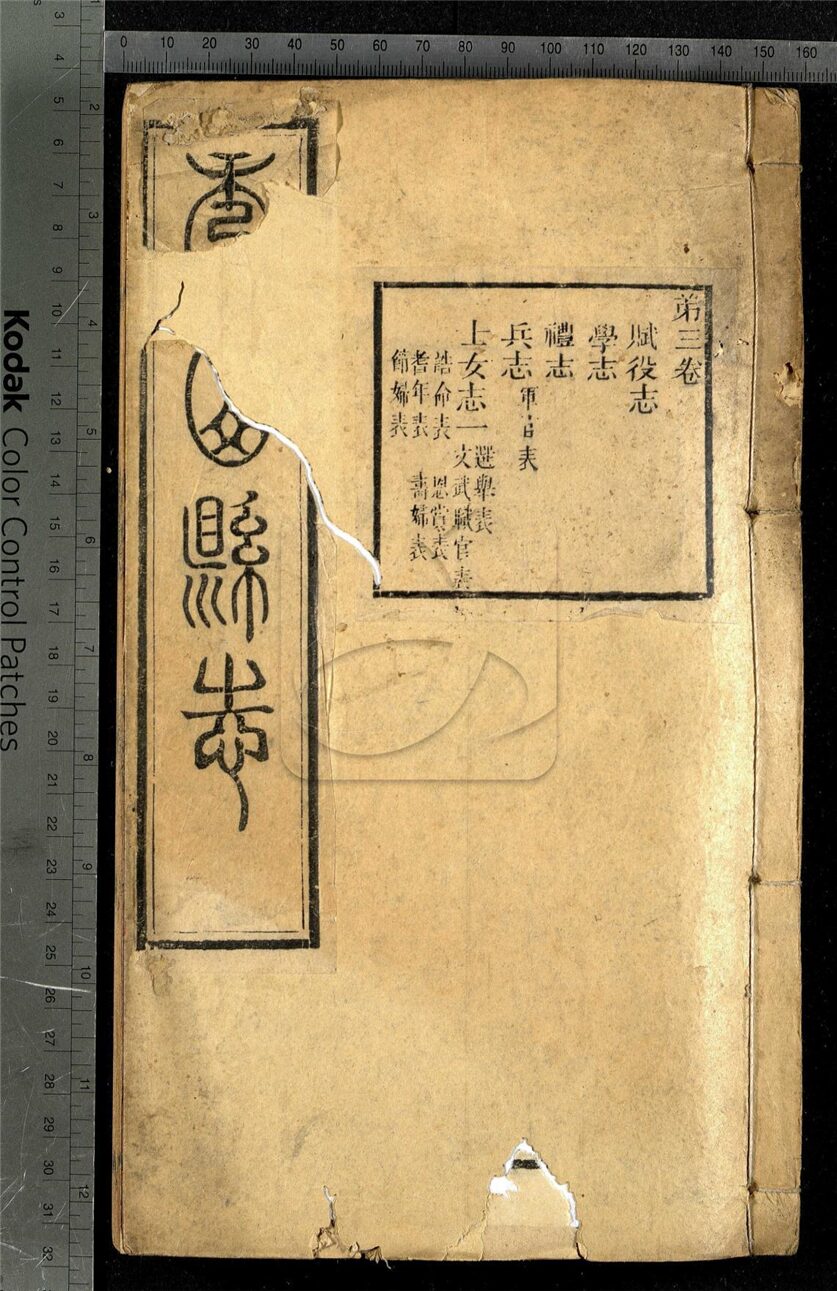 弟三卷
賦役志
學志
禮志
兵志 軍官表
士女志一 選舉表
文武職官表
誥命表 恩賞表
耆年表 壽婦表
節婦表
縣志
Kodak Color Control Patches
0 10 20 30 40 50 60 70 80 90 100 110 120 130 140 150 160
3 4 5 6 7 8 9 10 11 12 13 14 15 16 17 18 19 20 21 22 23 24 25 26 27 28 29 30 31 32
2 3 4 5 6 7 8 9 10 11 12